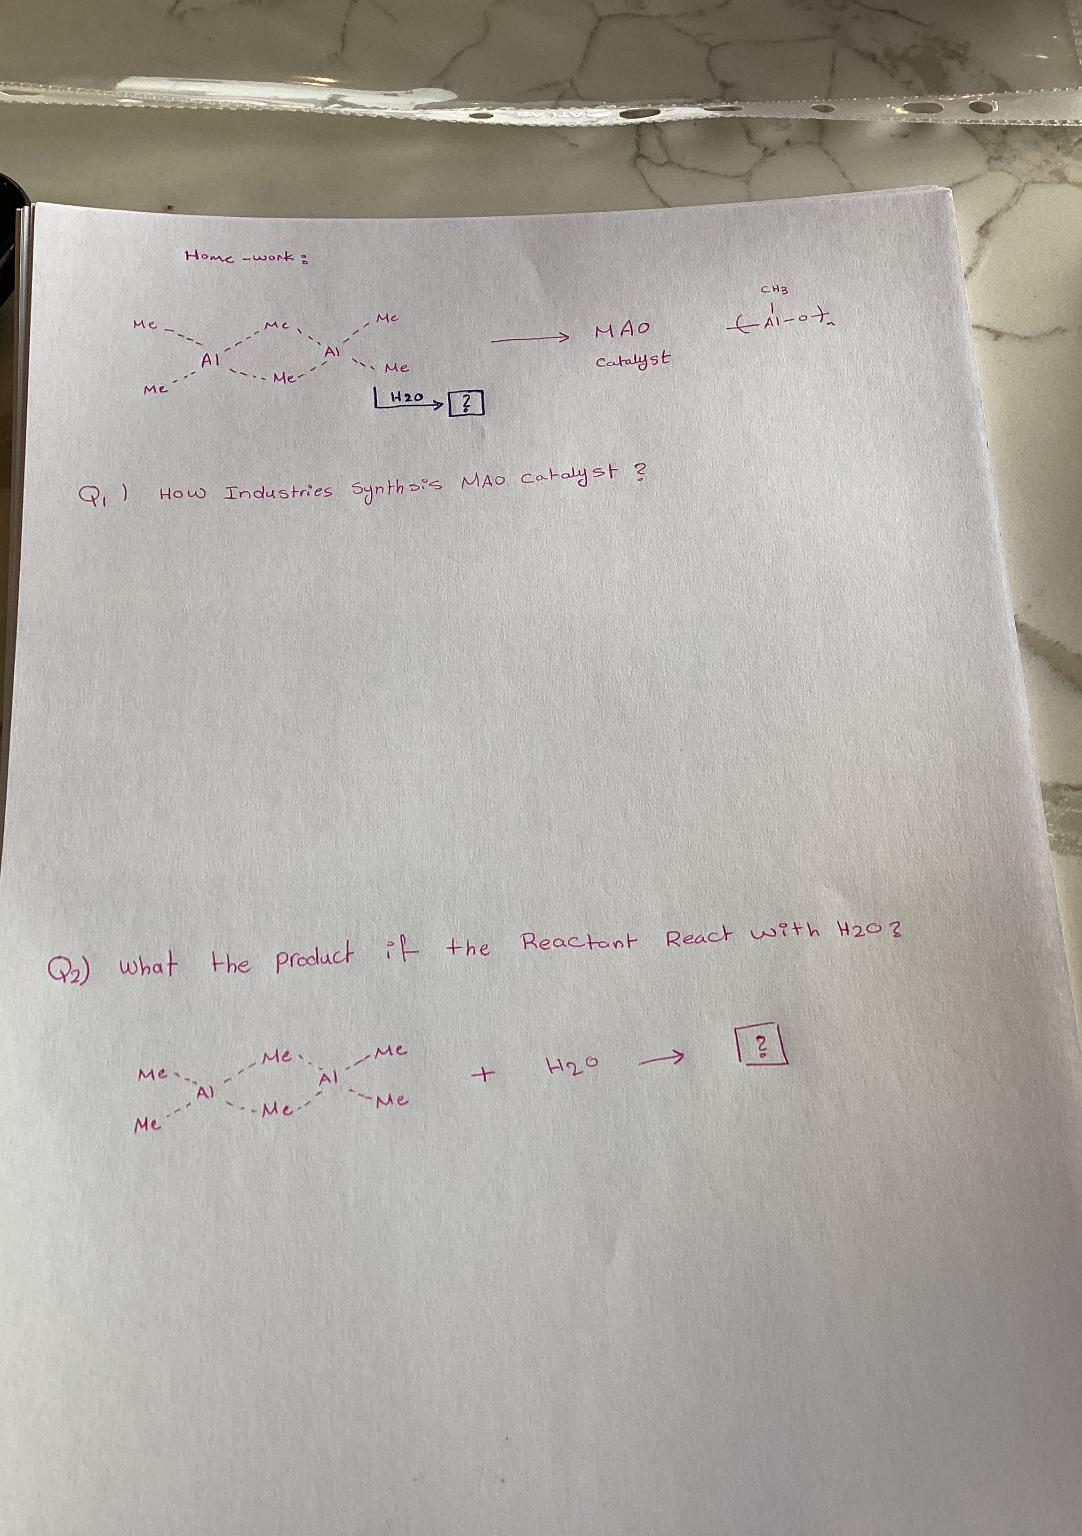 Home-work:
CH3
Me Me Me
Al Al
Me Me Me
MAO
Catalyst
(Al-O)n
H2O ?
Q1) How Industries Synthsis MAO catalyst ?
Q2) What the product if the Reactant React with H2O?
Me Me Me
Al Al
Me Me Me
+ H2O → ?